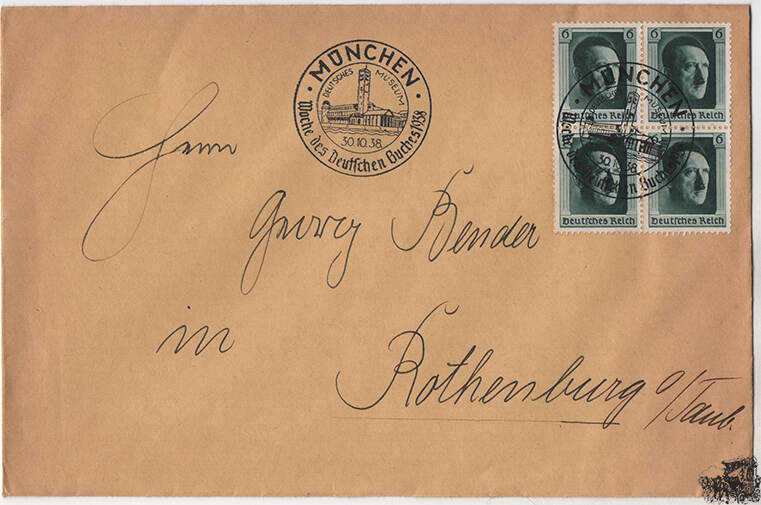 MÜNCHEN
DEUTSCHES MUSEUM
30.10.38.
Woche des Deutschen Buches 1938
6 6
Deutsches Reich Deutsches Reich
MÜNCHEN
MUSEUM
30.10.38.
Woche des Deutschen Buches 1938
6 6
Deutsches Reich Deutsches Reich
Herrn
Georg Bender
in
Rothenburg o/Taub.